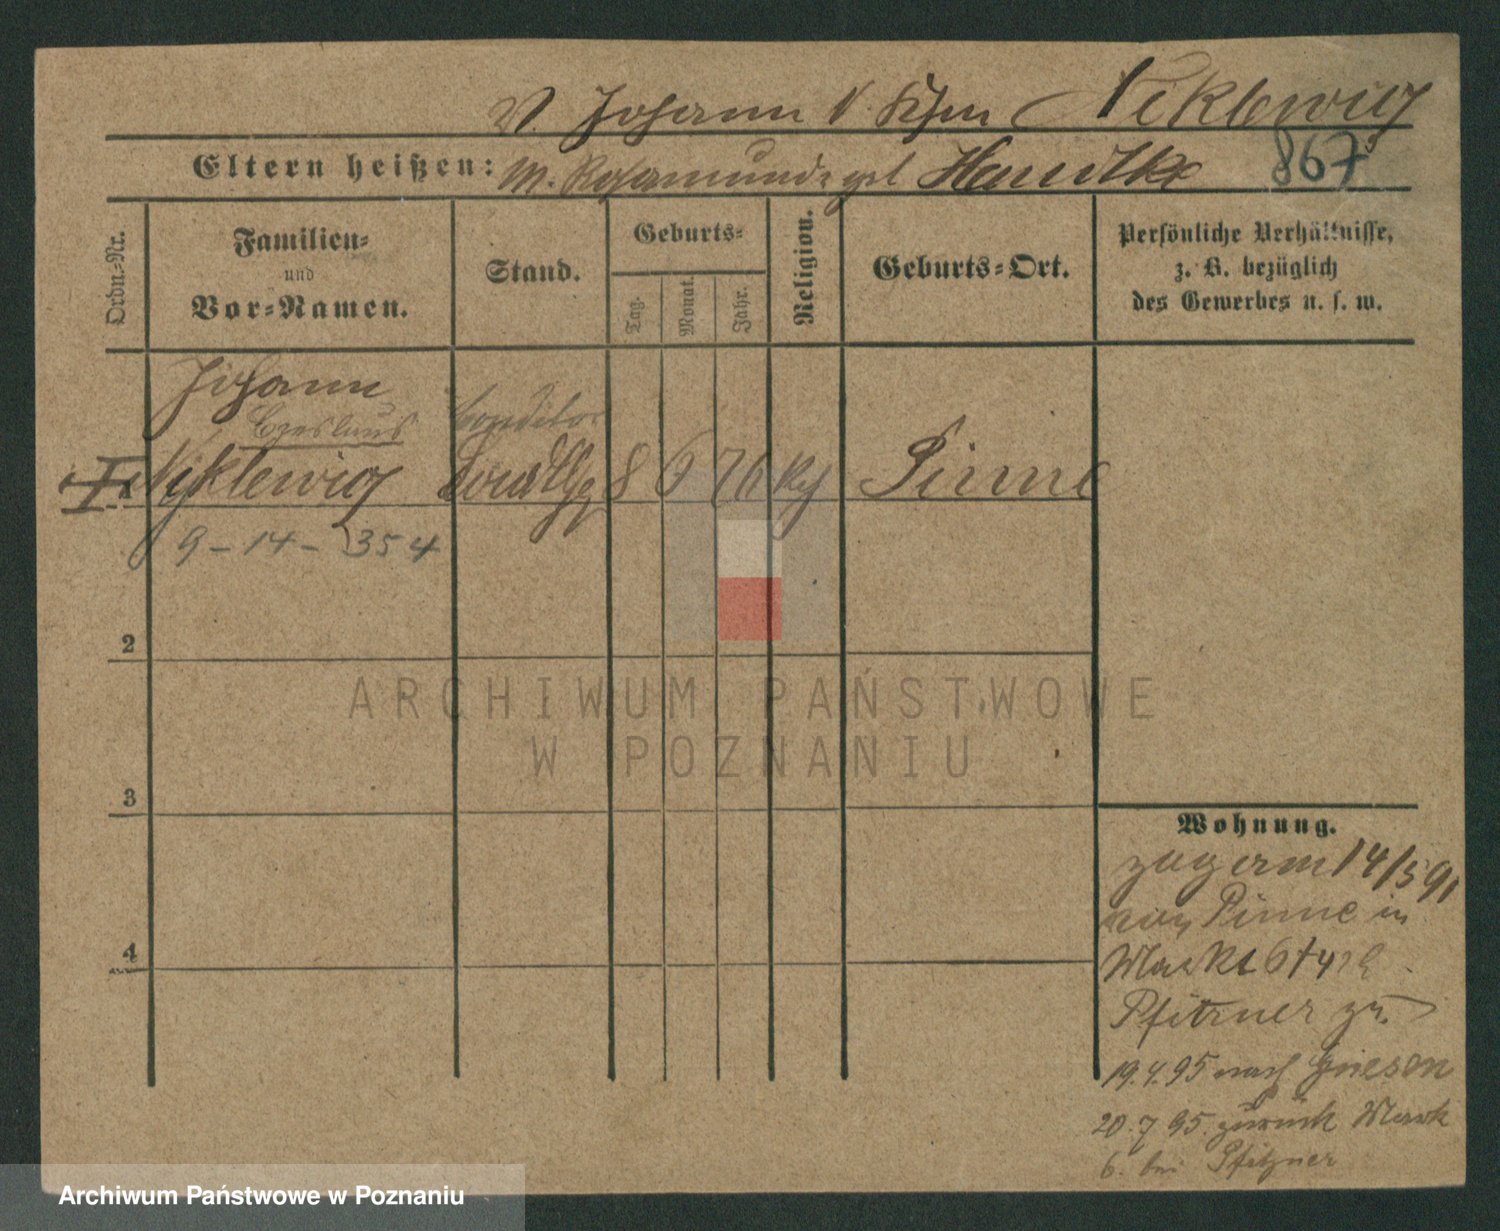 V. Johann Niklewicz
Eltern heißen: M. Rosamunde geb Handtke 867
Ordn=Nr.
Familien=
und
Vor=Namen.
Stand.
Geburts=
Tag.
Monat.
Jahr.
Religion.
Geburts=Ort.
Persönliche Verhältnisse,
z. B. bezüglich
des Gewerbes u. s. w.
Johann
Czeslaus Conditor
I Nyklewicz 8 6 76 Pinne
9-14-354
2
3
4
Wohnung.
zug am 14/5 91
von Pinne in
Markt 6
Pfitzner zu.
19.4.95 nach Gnesen
20.7 95. zurück Markt
6. bei Pfitzner
ARCHIWUM PAŃSTWOWE
W POZNANIU
Archiwum Państwowe w Poznaniu